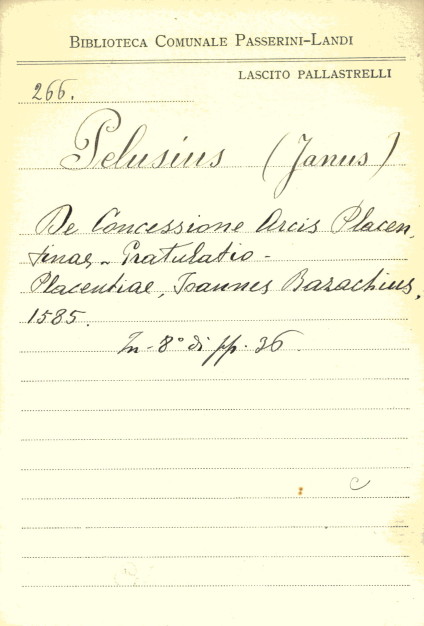 BIBLIOTECA COMUNALE PASSERINI-LANDI
LASCITO PALLASTRELLI
266.
Pelusius (Janus)
De Concessione Arcis Placen,
tinae, - Gratulatio -
Placentiae, Joannes Bazachius,
1585.
In-8° di pp. 36.
C